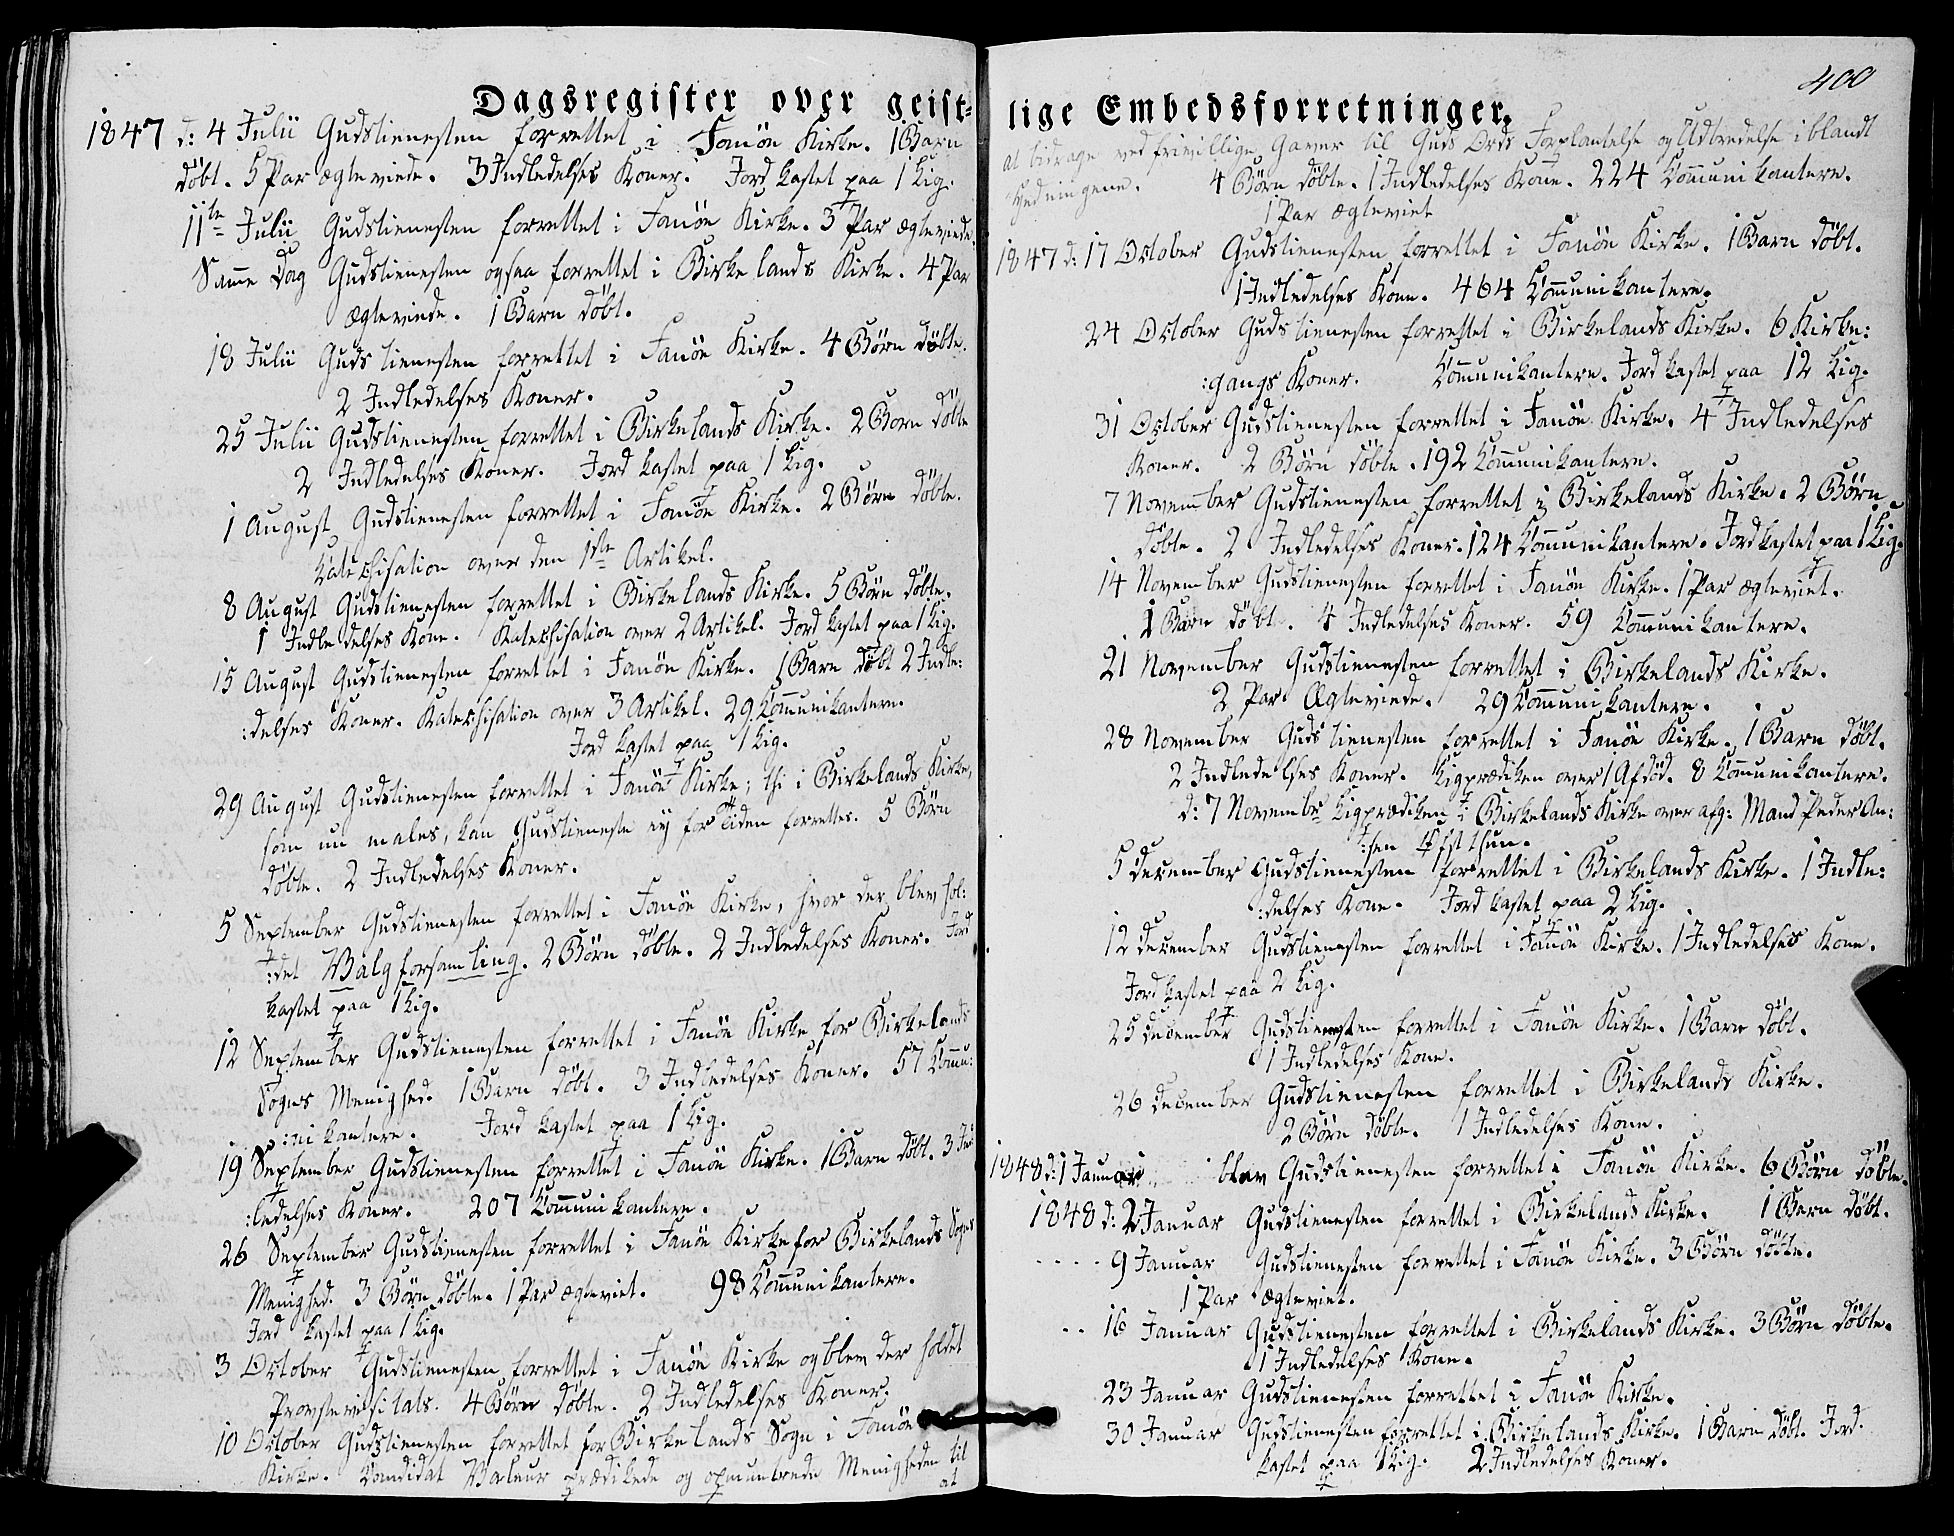 Dagsregister over geist-
1847 d: 4 Julii Gudstienesten forrettet i Fanöe Kirke. 1 Barn
döbt. 5 Par ægteviede. 3 Indledelses Koner. Jord kastet paa 1 Lig.
11te Julii Gudstienesten forrettet i Fanöe Kirke. 3 Par ægteviede.
Samme Dag Gudstienesten ogsaa forrettet i Birkelands Kirke. 4 Par
ægteviede. 1 Barn döbt.
18 Julii Gudstienesten forrettet i Fanöe Kirke. 4 Börn döbte.
2 Indledelses Koner.
25 Julii Gudstienesten forrettet i Birkelands Kirke. 2 Börn döbte
2 Indledelses Koner. Jord kastet paa 1 Lig.
1 August Gudstienesten forrettet i Fanöe Kirke. 2 Börn döbte.
Katechisation over den 1ste Artikel.
8 August Gudstienesten forrettet i Birkelands Kirke. 5 Börn döbte.
1 Indledelses Kone. Katechisation over 2 Artikel. Jord kastet paa 1 Lig.
15 August Gudstienesten forrettet i Fanöe Kirke. 1 Barn döbt 2 Indle:
:delses Koner. Katechisation over 3 Artikel. 29 Communikantere.
Jord kastet paa 1 Lig.
29 August Gudstienesten forrettet i Fanöe Kirke; thi i Birkelands Kirke,
som nu males, kan Gudstieneste ej for Tiden forrettes. 5 Börn
döbte. 2 Indledelses Koner.
5 September Gudstienesten forrettet i Fanöe Kirke, hvor der blev hol:
:det Valgforsamling. 2 Börn döbte. 2 Indledelses Koner. Jord
kastet paa 1 Lig.
12 September Gudstienesten forrettet i Fanöe Kirke for Birkelands
Sogns Menighed. 1 Barn döbt. 3 Indledelses Koner. 57 Commu:
:nikantere. Jord kastet paa 1 Lig.
19 September Gudstienesten forrettet i Fanöe Kirke. 1 Barn döbt. 3 Ind
:ledelses Koner. 207 Communikantere.
26 September Gudstienesten forrettet i Fanöe Kirke for Birkelands Sogns
Menighed. 3 Börn döbte. 1 Par ægteviet. 98 Communikantere.
Jord kastet paa 1 Lig.
3 October Gudstienesten forrettet i Fanöe Kirke og blev der holdt
Provstevisitats. 4 Börn döbte. 2 Indledelses Koner.
10 October Gudstienesten forrettet for Birkelands Sogn i Fanöe
Kirke. Candidat Valeur prædikede og opmuntrede Menigheden til
at
400
lige Embedsforretninger.
at bidrage ved frivillige Gaver til Guds Ords Forplantelse og Udbredelse iblandt
Hedningene. 4 Börn döbte. 1 Indledelses Kone. 224 Communikantere.
1 Par ægteviet
1847 d: 17 October Gudstienesten forrettet i Fanöe Kirke. 1 Barn döbt.
1 Indledelses Kone. 464 Communikantere.
24 October Gudstienesten forrettet i Birkelands Kirke. 6 Kirke:
:gangs Koner. Communikantere. Jord kastet paa 12 Lig.
31 October Gudstienesten forrettet i Fanöe Kirke. 4 Indledelses
Koner. 2 Börn döbte. 192 Communikantere.
7 November Gudstienesten forrettet i Birkelands Kirke. 2 Börn
döbte. 2 Indledelses Koner. 124 Communikantere. Jord kastet paa 1 Lig.
14 November Gudstienesten forrettet i Fanöe Kirke. 1 Par ægteviet.
1 Barn döbt. 4 Indledelses Koner. 59 Communikantere.
21 November Gudstienesten forrettet i Birkelands Kirke.
2 Par Ægteviede. 29 Communikantere.
28 November Gudstienesten forrettet i Fanöe Kirke. 1 Barn döbt.
2 Indledelses Koner. Ligprædiken over 1 Afdöd. 8 Communikantere.
d: 7 Novembr Ligprædiken i Birkelands Kirke over afg: Mand Peder An:
:sen
5 December Gudstienesten forrettet i Birkelands Kirke. 1 Indle:
:delses Kone. Jord kastet paa 2 Lig.
12 December Gudstienesten forrettet i Fanöe Kirke. 1 Indledelses Kone.
Jord kastet paa 2 Lig.
25 December Gudstienesten forrettet i Fanöe Kirke. 1 Barn döbt.
1 Indledelses Kone.
26 December Gudstienesten forrettet i Birkelands Kirke.
2 Börn döbte. 1 Indledelses Kone.
1848 d: 1 Januar blev Gudstienesten forrettet i Fanöe Kirke. 6 Börn döbte.
1848 d: 2 Januar Gudstienesten forrettet i Birkelands Kirke. 1 Barn döbt.
9 Januar Gudstienesten forrettet i Fanöe Kirke. 3 Börn döbte.
1 Par ægteviet.
16 Januar Gudstienesten forrettet i Birkelands Kirke. 3 Börn döbte.
1 Indledelses Kone.
23 Januar Gudstienesten forrettet i Fanöe Kirke.
30 Januar Gudstienesten forrettet i Birkelands Kirke. 1 Barn döbt. Jord
kastet paa 1 Lig. 2 Indledelses Koner.